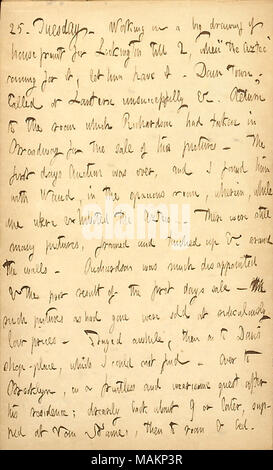 25. Tuesday. Working on a big drawing of
house front for Lockington till 2, when "the Aztec"
coming for it, let him have it. Down Town,
called at Lantern unsuccessfully &c. Return
to the room which Richardson had taken in
Broadway for the sale of his pictures. The
first days Auction was over, and I found him
with Waud, in the spacious room, wherein while
we were & hailed the
There were still
many pictures, framed and tacked up & around
the walls. Richardson was much disappointed
the poor result of the first days sale
such pictures as had gone were sold at ridiculously
low prices. Stayed awhile, then to Davis'
shop-place, which I could not find. Over to
Brooklyn, in a fruitless and wearisome quest after
his residence; drearily back about 9 or later, sup-
ped at then to room & bed.
alamy
Image ID: MAKP3R
www.alamy.com